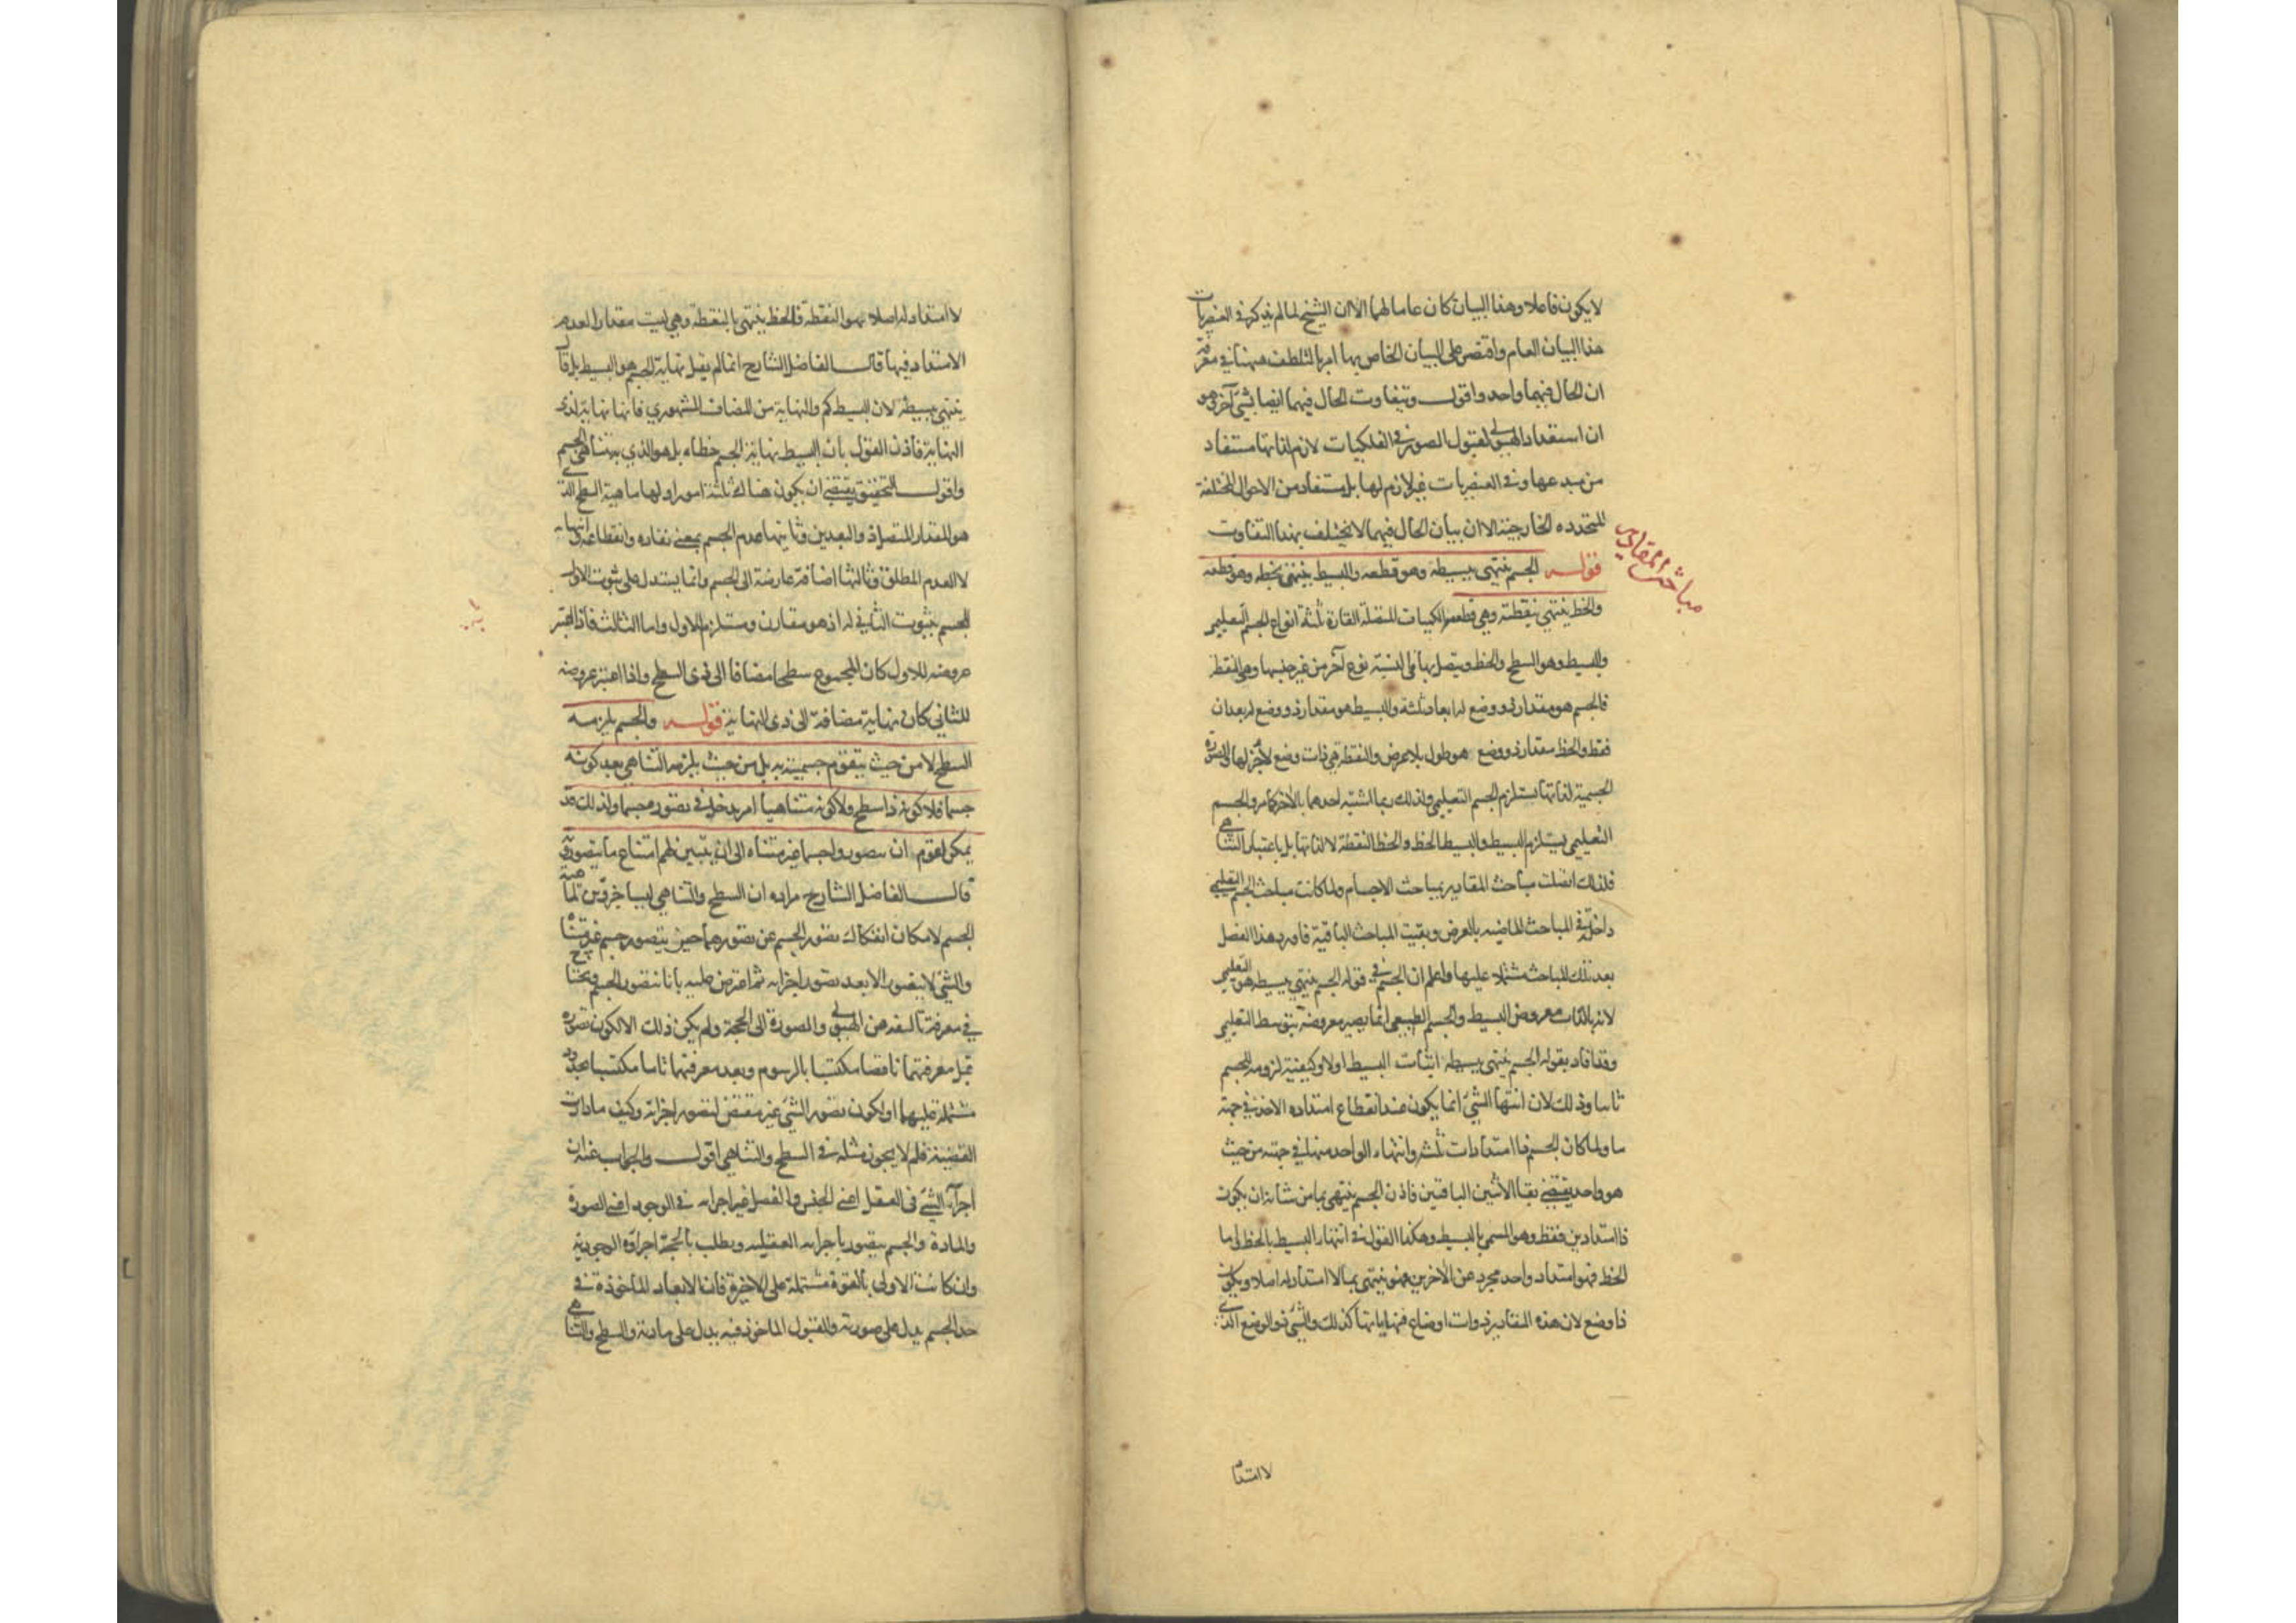 لا يكون فاعلا وهذا البيان كان عاما لهما الا ان الشيخ لما لم يذكر في العنصريات
هذا البيان العام واقتصر على البيان الخاص بها امر بالتلطف ههنا في معرفة
ان الحال فيهما واحد واقول وتفاوت الحال فيهما ايضا بشئ آخر وهو
ان استعداد الهيولى لقبول الصور في الفلكيات لازم لذاتها مستفاد
من مبدعها وفي العنصريات غير لازم لها بل مستفاد من الاحوال المختلفة
المتجدده الخارجية الا ان بيان الحال فيهما لا يختلف بهذا التفاوت
مباحث المقادير
قوله الجسم ينتهي ببسيطه وهو قطعه والبسيط ينتهي بخطه وهو قطعه
والخط ينتهي بنقطته وهي قطعه الكميات المتصلة القارة ثلثة انواع الجسم التعليمي
والبسيط وهو السطح والخط ويتصل بها في النسبة نوع آخر من غير جنسها وهي النقط
فالجسم هو مقدار ذو وضع له ابعاد ثلثة والبسيط هو مقدار ذو وضع له بعدان
فقط والخط مقدار ذو وضع هو طول بلا عرض والنقطة هي ذات وضع لا جزء لها والصورة
الجسمية لذاتها تستلزم الجسم التعليمي ولذلك ربما اشتبه احدهما بالآخر كما مر والجسم
التعليمي يستلزم البسيط والبسيط الخط والخط النقطة لا لذاتها بل باعتبار التناهي
فلذلك اتصلت مباحث المقادير بمباحث الاجسام ولما كانت مباحث الجسم التعليمي
داخلة في المباحث الماضيه بالعرض وبقيت المباحث الباقية فاورد هذا الفصل
بعد تلك المباحث مشتملا عليها واعلم ان الجسم في قوله الجسم ينتهي ببسيطه هو التعليمي
لانه بالذات معروض البسيط والجسم الطبيعي انما يصير معروضه بتوسط التعليمي
وقد افاد بقوله الجسم ينتهي ببسيطه اثبات البسيط اولا وكيفية لزومه للجسم
ثانيا وذلك لان انتهاء الشئ انما يكون عند انقطاع امتداده الاخذ في جهة
ما ولما كان الجسم ذا امتدادات ثلثة وانتهاء الواحد منها في جهته من حيث
هو واحد يقتضي بقاء الاثنين الباقيين فاذن الجسم ينتهي بما من شانه ان يكون
ذا امتدادين فقط وهو المسمى بالبسيط وهكذا القول في انتهاء البسيط بالخط واما
الخط فهو امتداد واحد مجرد عن الآخرين فهو ينتهي بما لا امتداد له اصلا ويكون
ذا وضع لان هذه المقادير ذوات اوضاع فنهاياتها كذلك والشئ ذو الوضع الذي
لا امتداد
لا امتداد له اصلا هو النقطة فالخط ينتهي بالنقطة وهي ليست مقدارا لعدم
الامتداد فيها قال الفاضل الشارح انما لم يقل نهاية الجسم هو البسيط بل قال
ينتهي ببسيطه لان البسيط كم والنهاية من المضاف المشهوري فانها نهاية لذي
النهاية فاذن القول بان البسيط نهاية الجسم خطاء بل هو الذي به يتناهى الجسم
واقول التحقيق يقتضي ان يكون هناك ثلثة امور اولها ماهية السطح الذي
هو المقدار المتصل ذو البعدين وثانيها عدم الجسم بمعنى نفاده وانقطاعه وانتهائه
لا العدم المطلق وثالثها اضافة عارضة الى الجسم وانما يستدل على ثبوت الاول
للجسم بثبوت الثاني له اذ هو مقارن ومستلزم للاول واما الثالث فاذا اعتبر
عروضه للاول كان المجموع سطحا مضافا الى ذي السطح واذا اعتبر عروضه
للثاني كان نهاية مضافة الى ذي النهاية قوله والجسم يلزمه
السطح لا من حيث يتقوم جسميته به بل من حيث يلزمه التناهي بعد كونه
جسما فلا كونه ذا سطح ولا كونه متناهيا امر يدخل في تصوره جسما ولذلك قد
يمكن لقوم ان يتصوروا جسما غير متناه الى ان يتبين لهم امتناع ما يتصورونه
قال الفاضل الشارح مراده ان السطح والتناهي ليسا جزوين لماهية
الجسم لامكان انفكاك تصور الجسم عن تصورهما حين يتصور جسم غير متناه
والشئ لا يتصور الا بعد تصور اجزائه ثم اعترض عليه بانا نتصور الجسم ونحتاج
في معرفة تالفه من الهيولى والصورة الى الحجة ولم يكن ذلك الا لكون تصوره
قبل معرفتهما ناقصا مكتسبا بالرسوم وبعد معرفتهما تاما مكتسبا بحدود
مشتملة عليهما او لكون تصور الشئ غير مقتض لتصور اجزائه وكيف ما دارت
القضية فلم لا يجوز مثله في السطح والتناهي اقول والجواب عنه ان
اجزاء الشئ في العقل اعني الجنس والفصل غير اجزائه في الوجود اعني الصورة
والمادة والجسم يتصور باجزائه العقلية ويطلب بالحجة اجزاؤه الوجودية
وان كانت الاولى بالقوة مشتملة على الاخيرة فان الابعاد الماخوذة في
حد الجسم يدل على صورته والقبول الماخوذ فيه يدل على مادته والسطح والتناهي